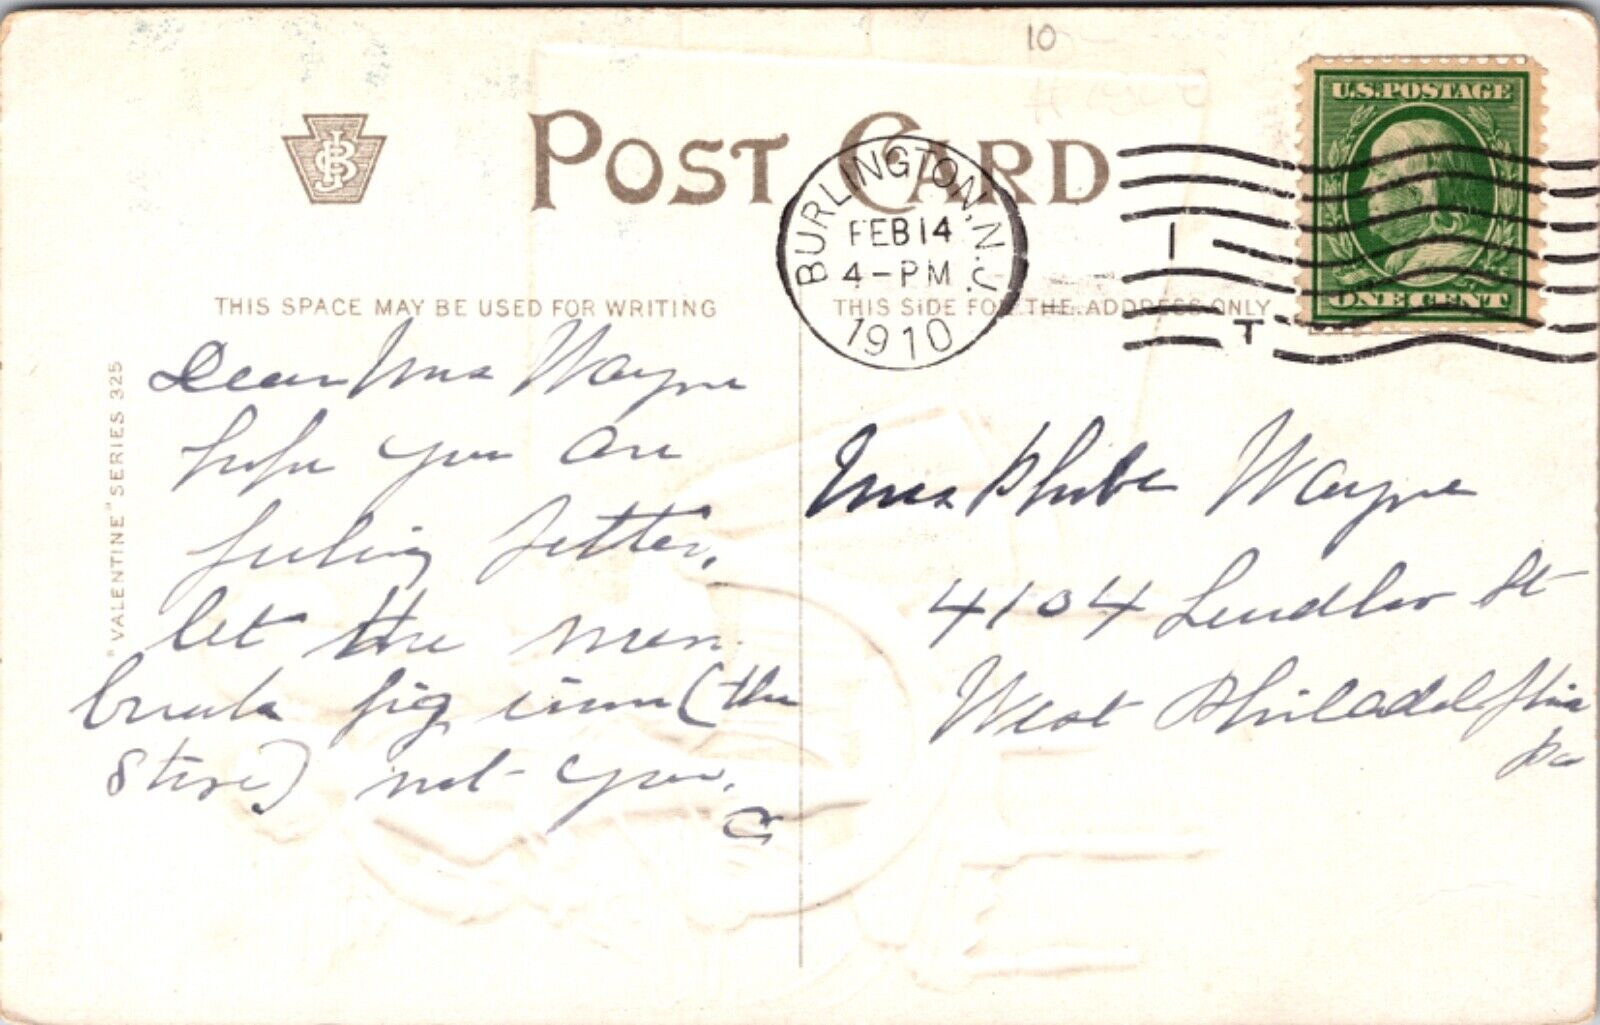 10
POST CARD
JPBS
U.S. POSTAGE
ONE CENT
BURLINGTON, N.J.
FEB 14
4-PM
1910
I
T
THIS SPACE MAY BE USED FOR WRITING
THIS SIDE FOR THE ADDRESS ONLY
"VALENTINE" SERIES 325
Dear Mrs Wayne
hope you are
feeling better.
let the men
break (the
store) not you.
C
Mrs Phebe Wayne
4104 St
West Philadelphia
Pa